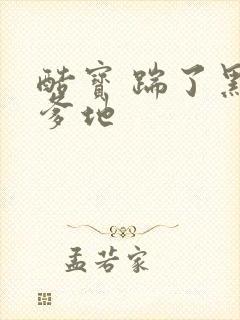 酷寶踹了黑
爹地
孟若家